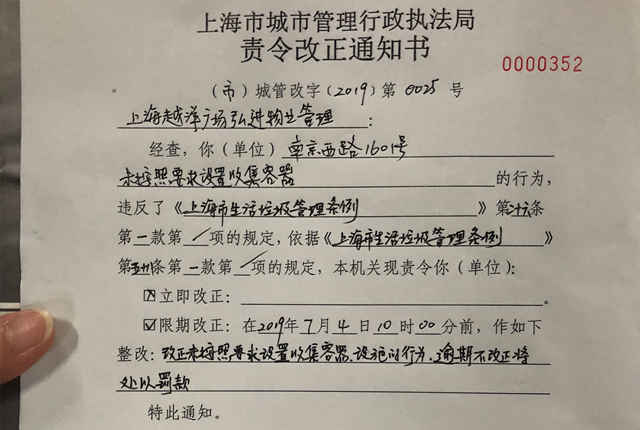 上海市城市管理行政执法局
责令改正通知书
0000352
（市）城管改字（2019）第 0025 号
上海越洋广场弘进物业管理：
经查，你（单位）南京西路1601号
未按照要求设置收集容器 的行为，
违反了《上海市生活垃圾管理条例》第 条
第一款第／项的规定，依据《上海市生活垃圾管理条例》
第 条第一款第／项的规定，本机关现责令你（单位）：
☒立即改正： 。
☑限期改正：在2019年7月4日10时00分前，作如下
整改：改正未按照要求设置收集容器、设施的行为，逾期不改正将
处以罚款
特此通知。